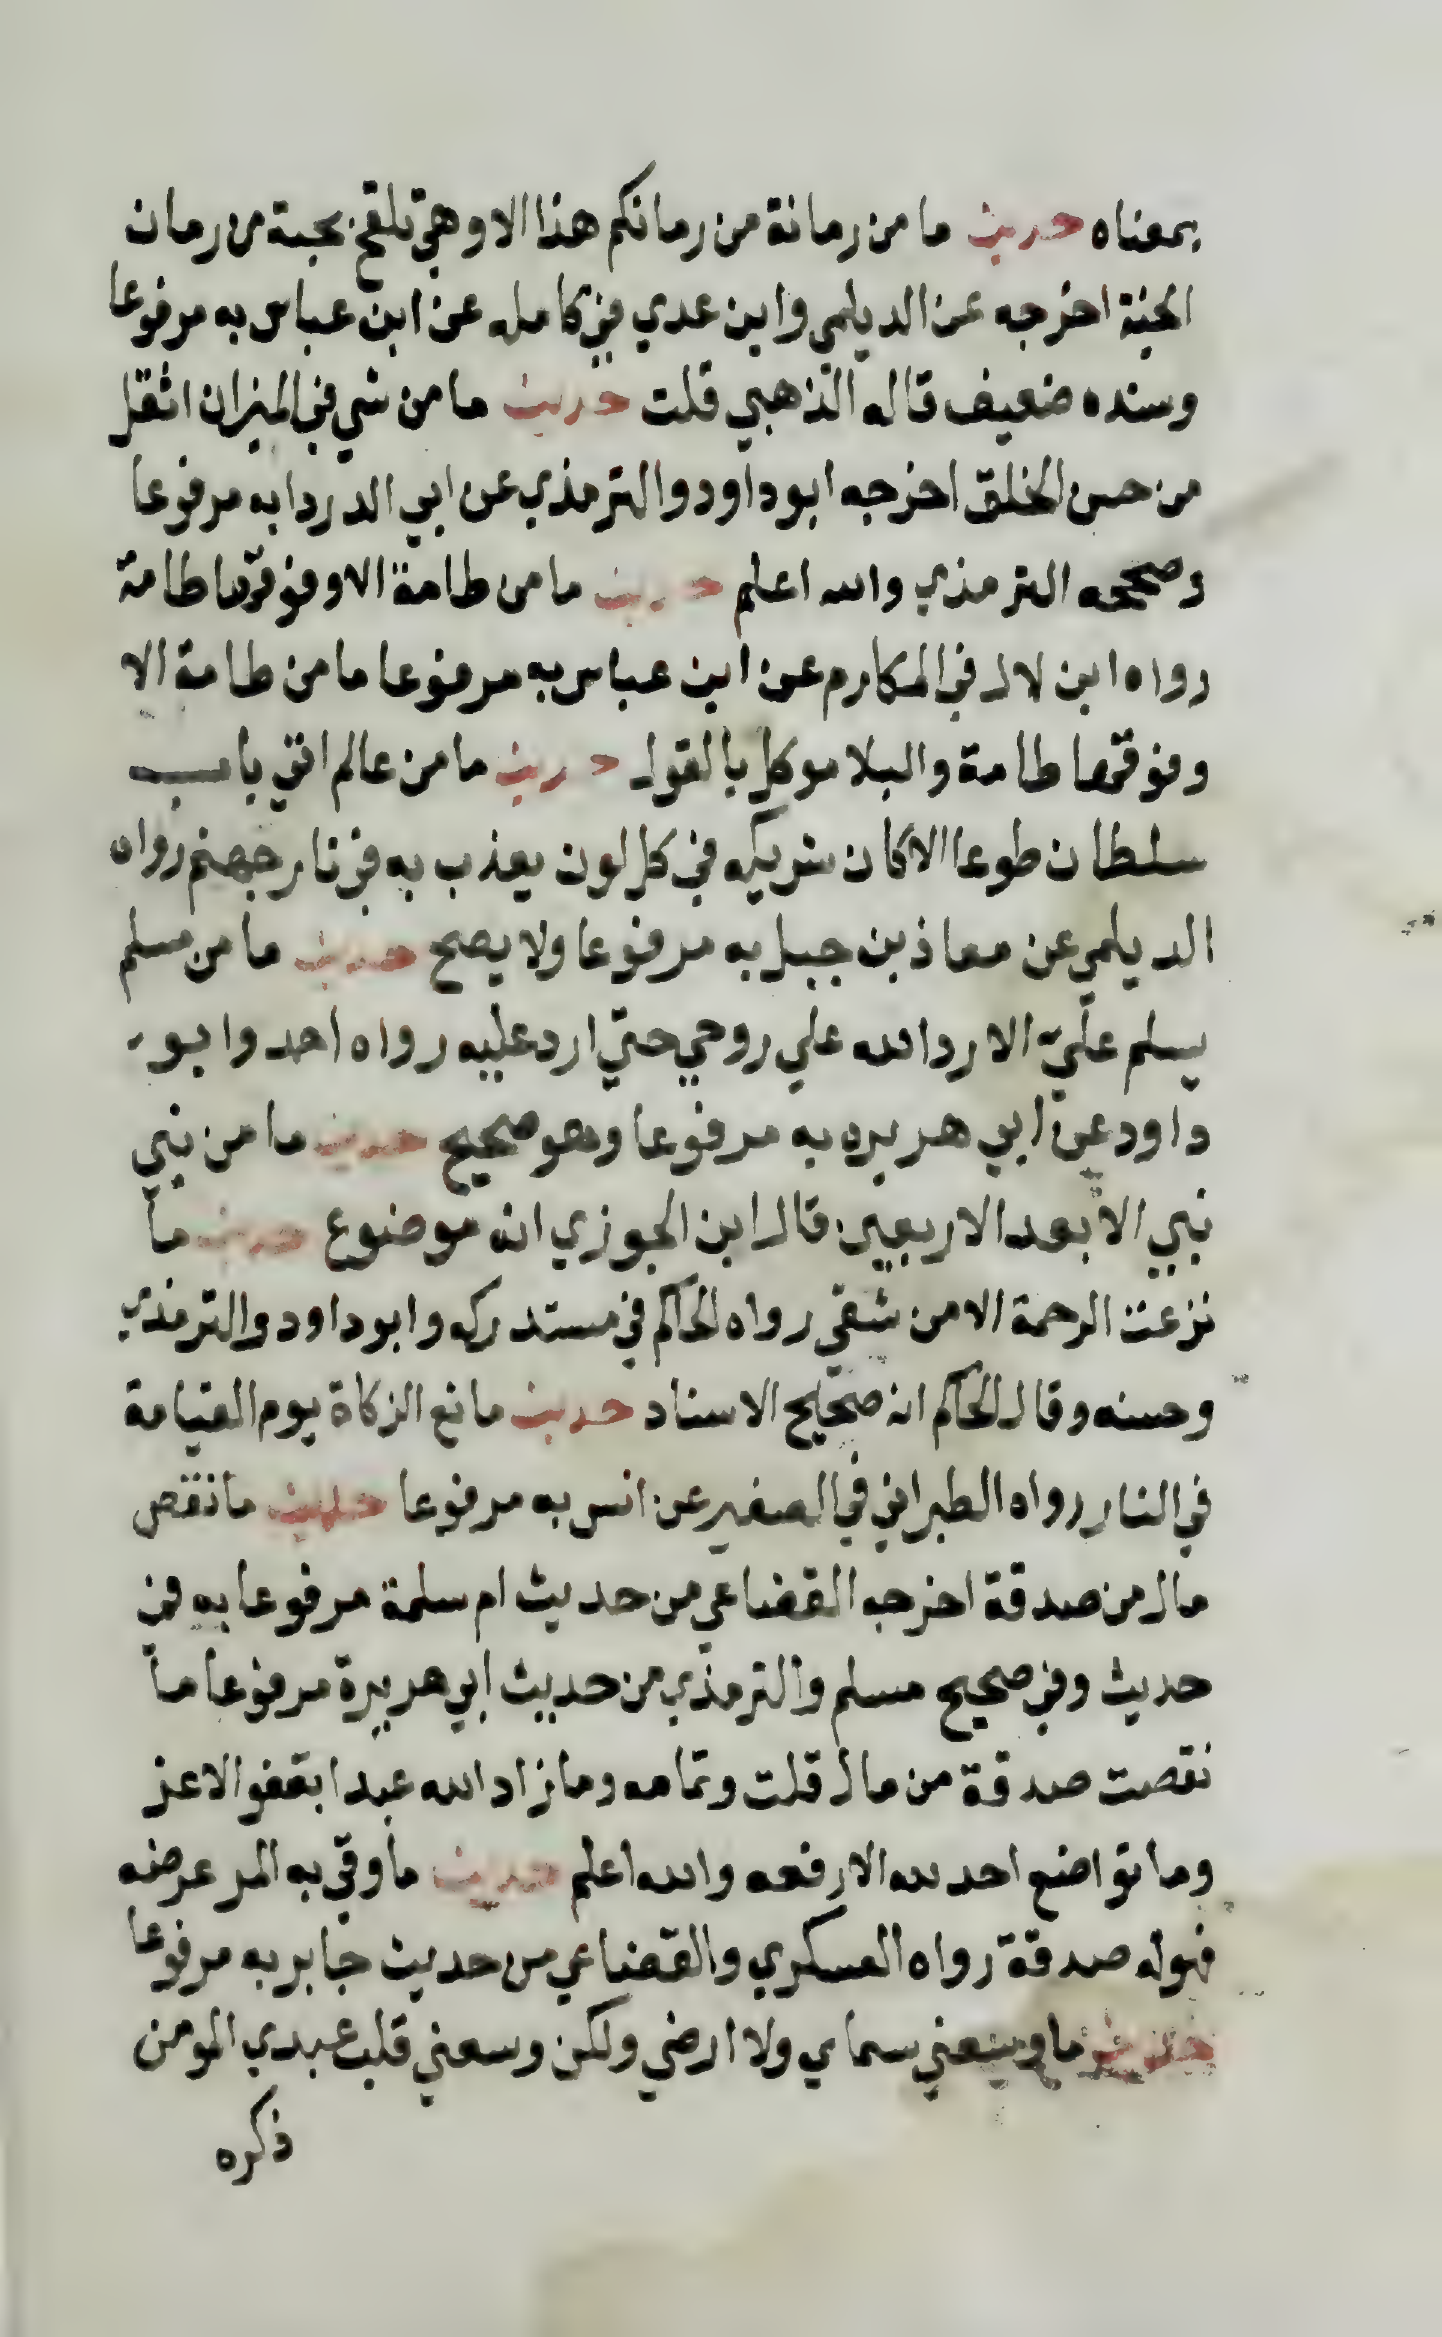 بمعناه حديث ما من رمانة من رمانكم هذا الا وهي تلقح بحبة من رمان
الجنة اخرجه عن الديلمي وابن عدي في كامله عن ابن عباس به مرفوعا
وسنده ضعيف قاله الذهبي قلت حديث ما من شي في الميزان اثقل
من حسن الخلق اخرجه ابوداود والترمذي عن ابي الدردا به مرفوعا
وصححه الترمذي والله اعلم حديث ما من طامة الا وفوقها طامة
رواه ابن لال في المكارم عن ابن عباس به مرفوعا ما من طامة الا
وفوقها طامة والبلا موكل بالقول حديث ما من عالم اتي باب
سلطان طوعا الا كان شريكه في كل لون يعذب به في نار جهنم رواه
الديلمي عن معاذ بن جبل به مرفوعا ولا يصح حديث ما من مسلم
يسلم عليّ الا رد الله علي روحي حتي ارد عليه رواه احمد وابو
داود عن ابي هريره به مرفوعا وهو صحيح حديث ما من نبي
نبي الا بعد الاربعين قال ابن الجوزي انه موضوع حديث ما
نزعت الرحمة الا من شقي رواه الحاكم في مستدركه وابوداود والترمذي
وحسنه وقال الحاكم انه صحيح الاسناد حديث مانع الزكاة يوم القيامة
في النار رواه الطبراني في الصغير عن انس به مرفوعا حديث ما نقص
مال من صدقة اخرجه القضاعي من حديث ام سلمة مرفوعا به في
حديث وفي صحيح مسلم والترمذي من حديث ابي هريرة مرفوعا ما
نقصت صدقة من مال قلت وتمامه وما زاد الله عبدا بعفو الا عز
وما تواضع احد لله الا رفعه والله اعلم حديث ما وقي به المر عرضه
فهوله صدقة رواه العسكري والقضاعي من حديث جابر به مرفوعا
حديث ما وسعني سماي ولا ارضي ولكن وسعني قلب عبدي المومن
ذكره